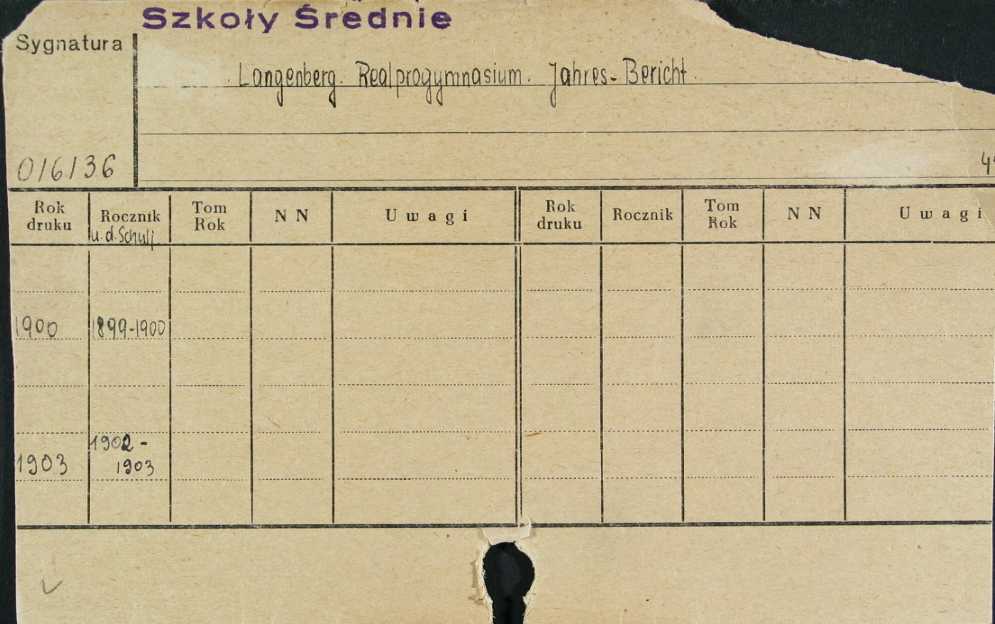 Szkoły Średnie
Sygnatura
Langenberg. Realprogymnasium. Jahres-Bericht.
0/6/36
Rok druku Rocznik u.d.Schulj Tom Rok N N Uwagi Rok druku Rocznik Tom Rok N N Uwagi
1900 1899-1900
1902-
1903 1903